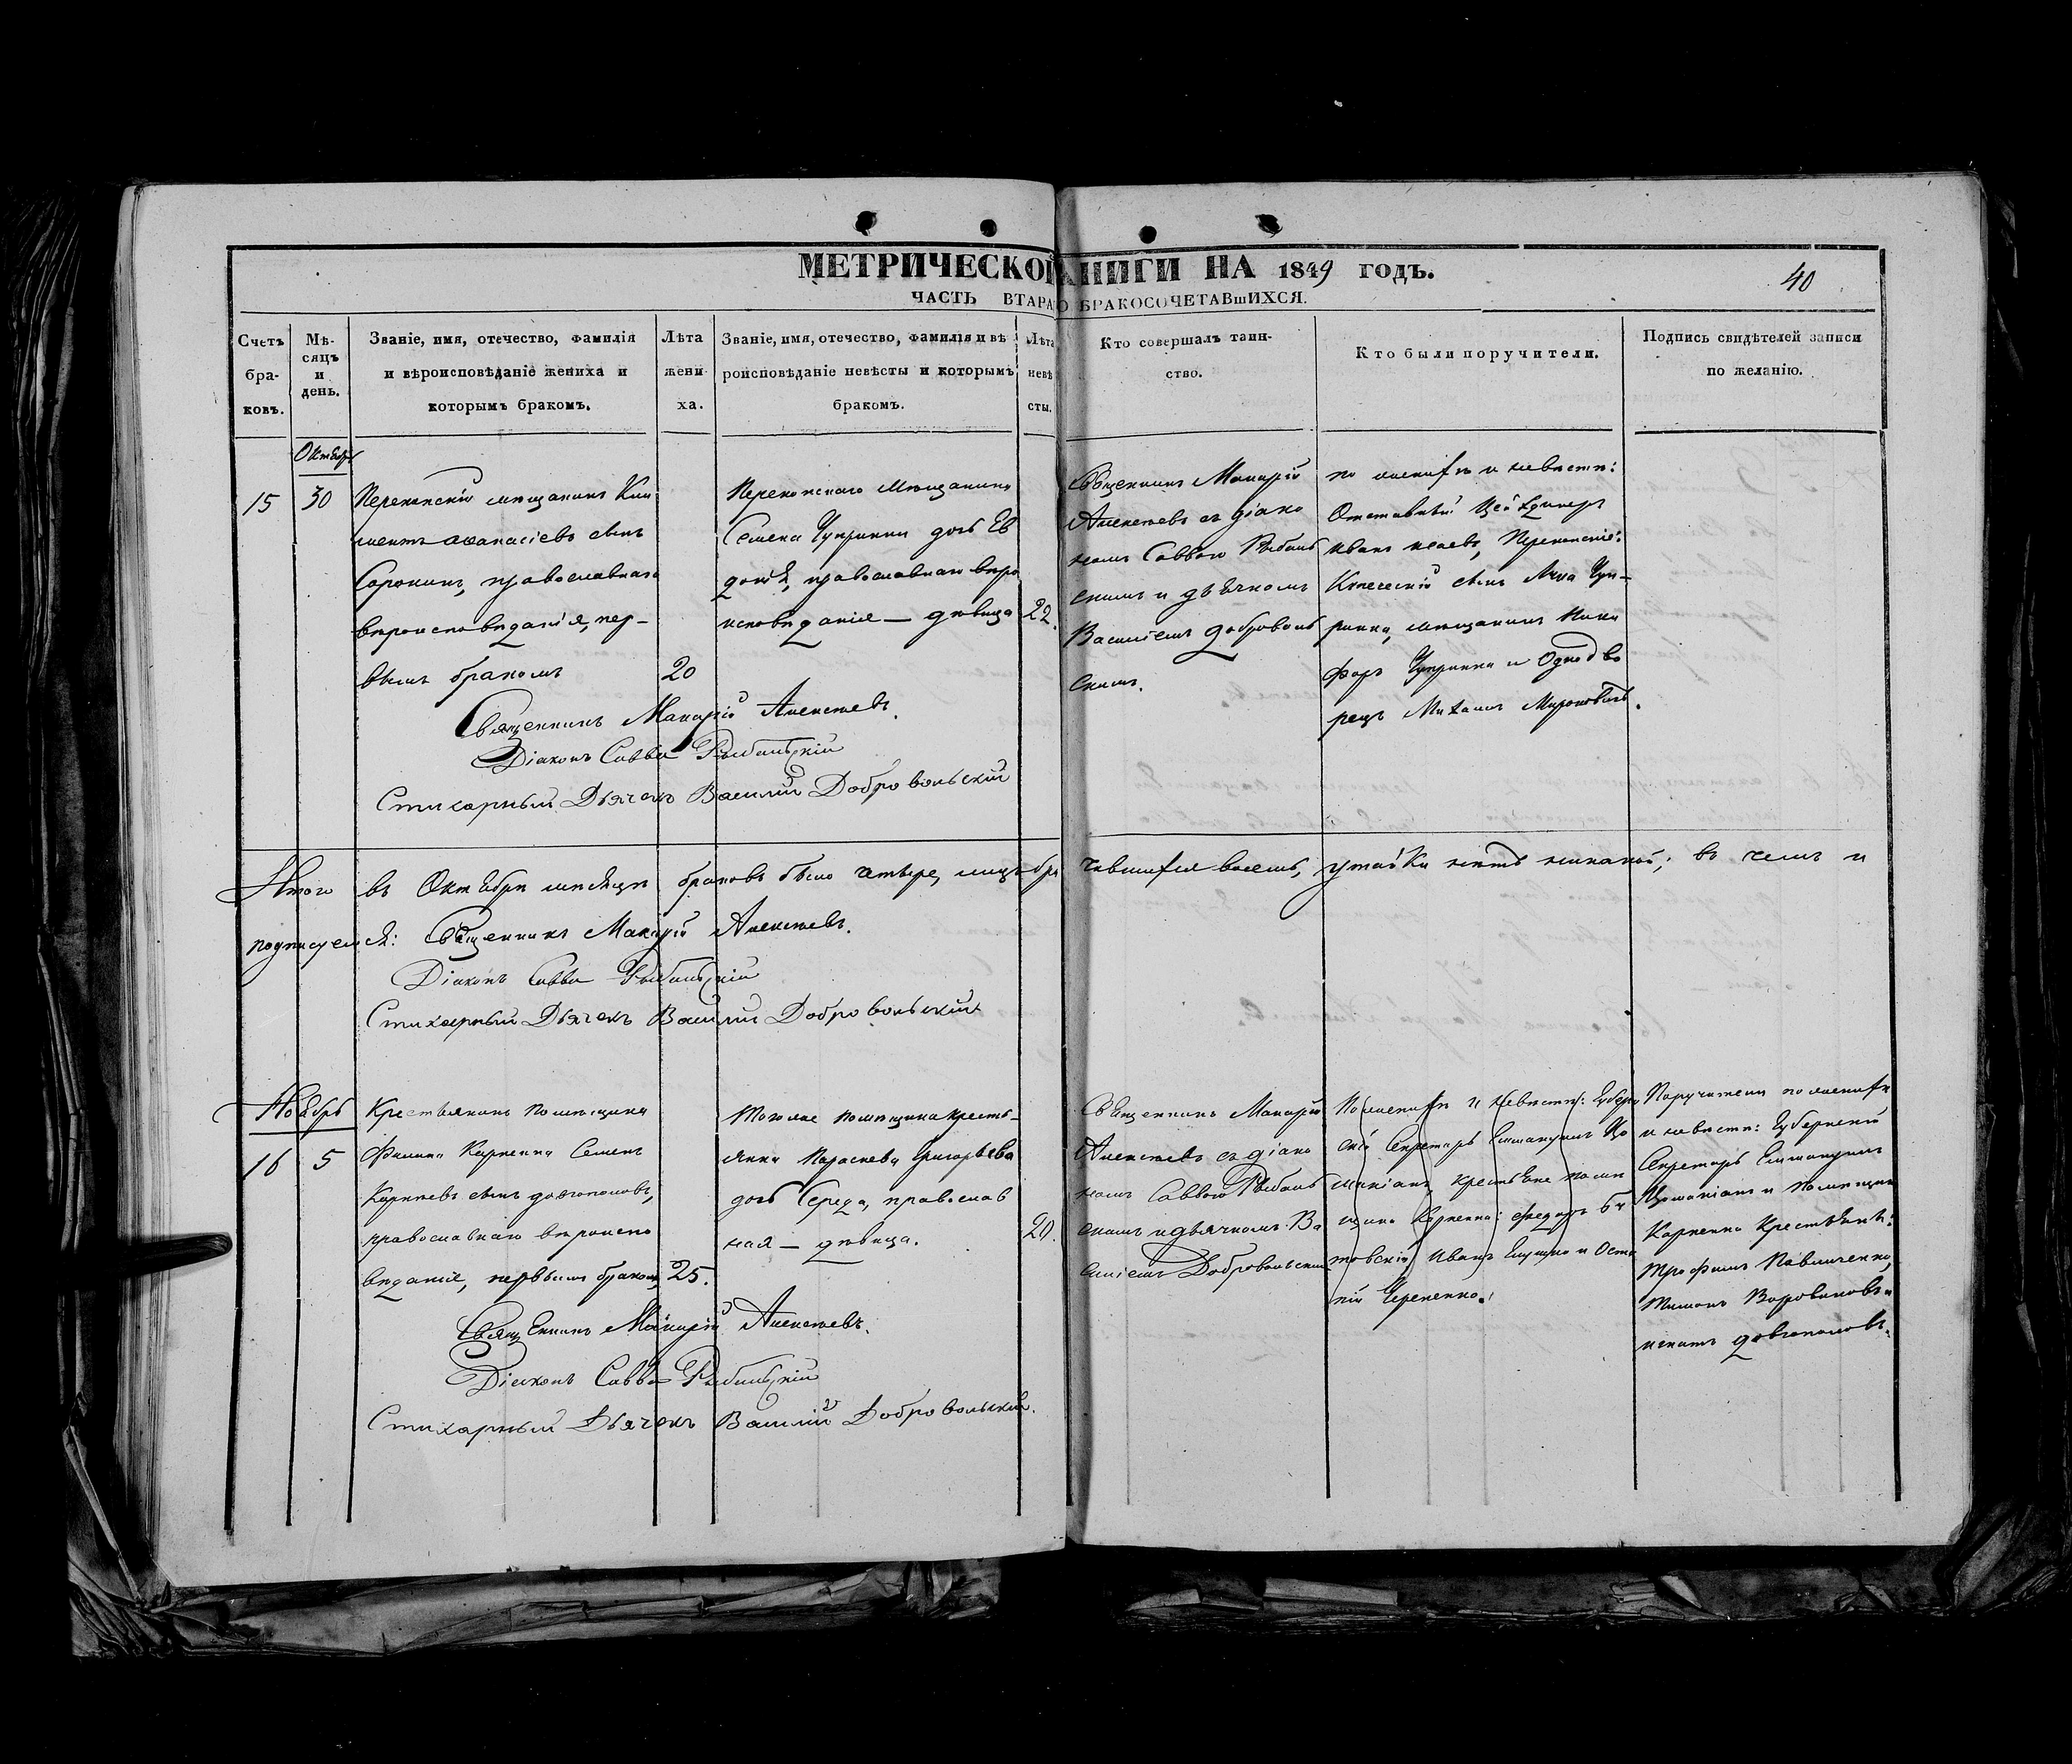 МЕТРИЧЕСКОЙ КНИГИ НА 1849 ГОДЪ.
40
ЧАСТЬ ВТАРАЯ О БРАКОСОЧЕТАВШИХСЯ.
Счетъ браковъ.
Мѣсяцъ и день.
Званіе, имя, отечество, фамилія и вѣроисповѣданіе жениха и которымъ бракомъ.
Лѣта жениха.
Званіе, имя, отечество, фамилія и вѣроисповѣданіе невѣсты и которымъ бракомъ.
Лѣта невѣсты.
Кто совершалъ таинство.
Кто были поручители.
Подпись свидѣтелей записи по желанію.
Октябрь
15
30
Перекопскій мѣщанинъ Кли
ментъ Аѳанасіевъ сынъ
Сорокинъ, православнаго
вѣроисповѣданія, пер-
вымъ бракомъ
20
Перекопскаго мѣщанина
Семена Чупринки дочь Ев
докія, православнаго вѣро
исповѣданія — дѣвица
22.
Священникъ Макарій
Алексѣевъ съ діако
номъ Саввою Рыбаль
скимъ и дьячкомъ
Василіемъ Доброволь
скимъ.
по женихѣ и невѣстѣ:
Отставный
Иванъ Исаевъ, Перекопскіе:
Купеческій сынъ Лука Чуп-
ринка, мѣщанинъ Ники
форъ Чупринка и Однодво
рецъ Михаилъ Мироновичъ.
Священникъ Макарій Алексѣевъ.
Діаконъ Савва Рыбальскій
Стихарный Дьячекъ Василій Добровольскій
Итого въ Октябрѣ мѣсяцѣ браковъ было четыре, лицъ бра
чившихся восемь, утайки нѣтъ никакой; въ чемъ и
подписуемся: Священникъ Макарій Алексѣевъ.
Діаконъ Савва Рыбальскій
Стихарный Дьячекъ Василій Добровольскій
Ноябрь
16
5
Крестьянинъ помѣщика
Филипа Карпенка Семенъ
Корнѣевъ сынъ Довгополовъ,
православнаго вѣроиспо
вѣданія, первымъ бракомъ
25.
Тогоже помѣщика кресть-
янка Параскева Григорьева
дочь Середа, православ
ная — дѣвица.
20.
Священникъ Макарій
Алексѣевъ съ діако
номъ Саввою Рыбаль
скимъ и дьячкомъ Ва
силіемъ Добровольскимъ
По женихѣ и невѣстѣ: Губерн
скій Секретарь Еммануилъ
крестьяне помѣ
щика Карпенка: Федоръ
Иванъ и Оста
пій Черненко.
Поручители по женихѣ
и невѣстѣ: Губернскій
Секретарь Еммануилъ
и помѣщика
Карпенка крестьяне:
Трофимъ Павличенко,
и
Игнатъ Довгополовъ.
Священникъ Макарій Алексѣевъ.
Діаконъ Савва Рыбальскій
Стихарный Дьячекъ Василій Добровольскій.